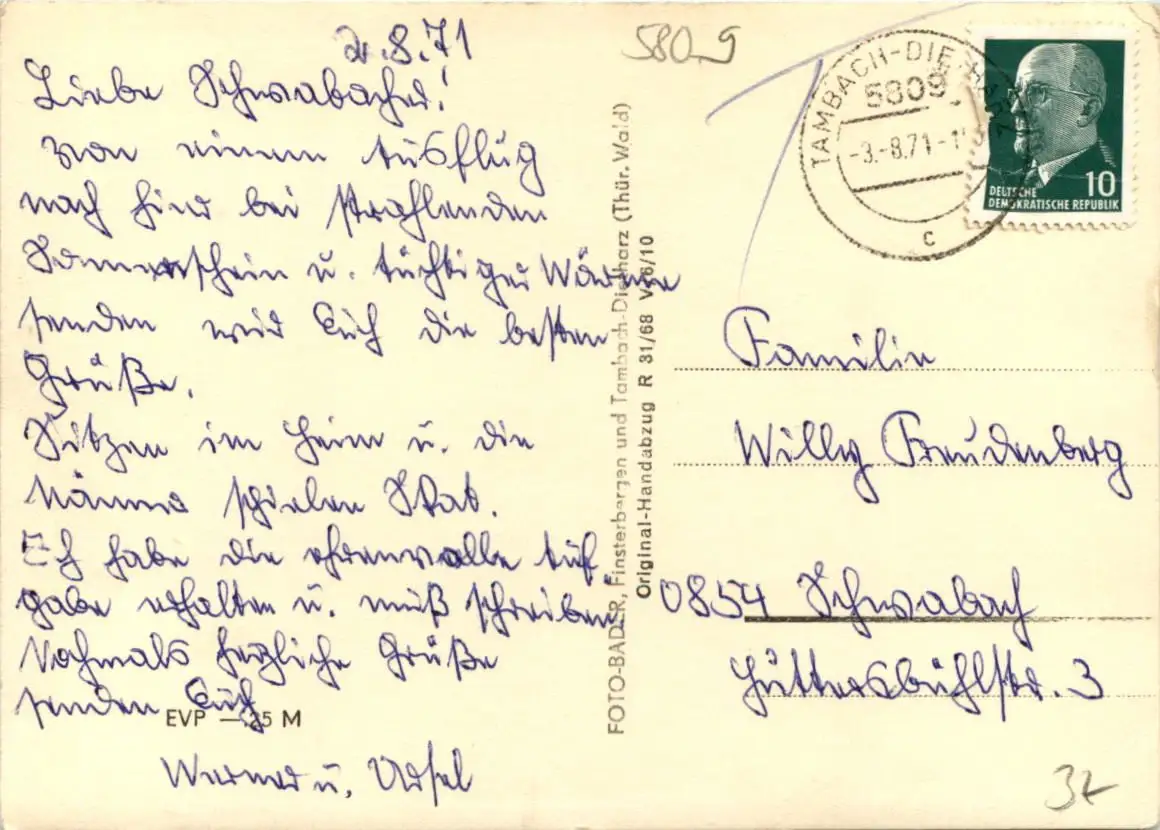 2.8.71
Liebe Schwabacher!
Von einem Ausflug
nach hier bei strahlenden
Sonnenschein u. tüchtiger Wärme
senden wir Euch die besten
Grüße.
Sitzen im Heim u. die
Männer spielen Skat.
Ich habe die ehrenvolle Auf-
gabe erhalten u. muß schreiben
Nochmals herzliche Grüße
senden Euch
EVP —.25 M
Werner u. Ursel
FOTO-BADER, Finsterbergen und Tambach-Dietharz (Thür. Wald)
Original-Handabzug R 31/68 V/6/10
5809
TAMBACH-DIETHARZ
5809
-3.-8.71-1
c
10
DEUTSCHE
DEMOKRATISCHE REPUBLIK
Familie
Willy Freudenberg
0854 Schwabach
Hüttersbühlstr. 3